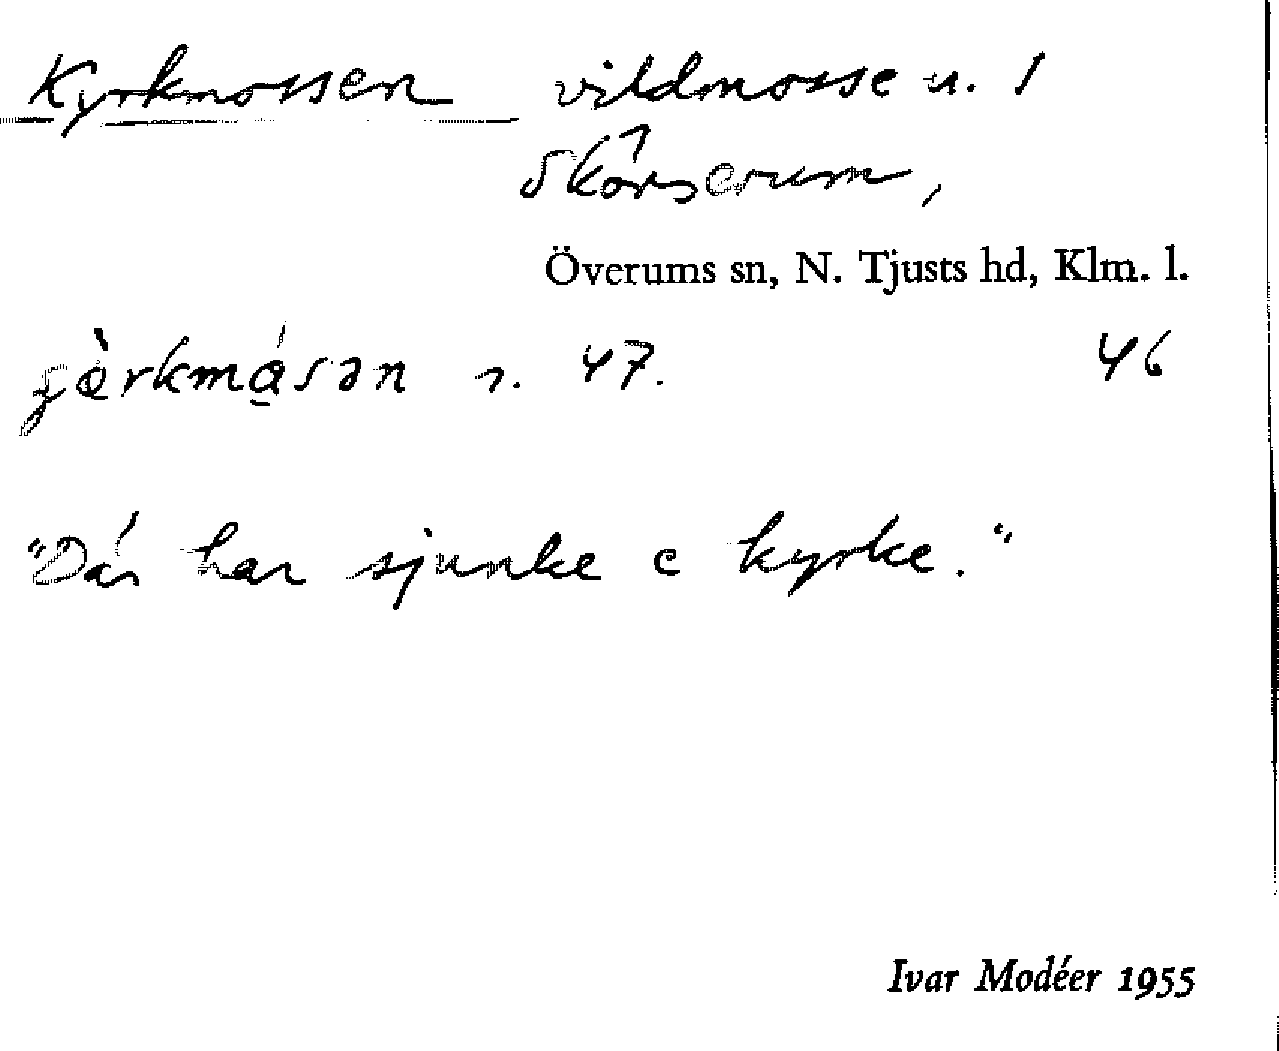 Kyrkmossen vildmosse u. 1
Skörserum,
Överums sn, N. Tjusts hd, Klm. l.
r. 47. 46
"Där har sjunke e kyrke."
Ivar Modéer 1955